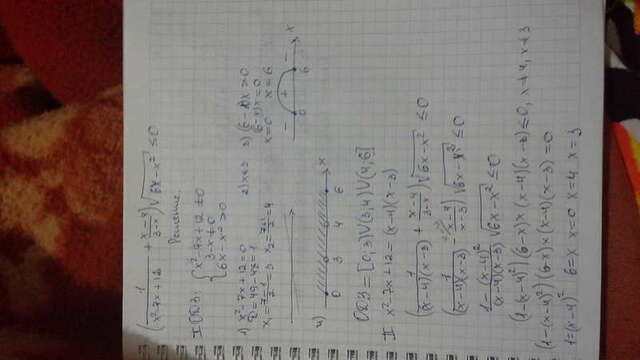 (1/(x²-7x+12) + (x-4)/(3-x)) √(6x-x²) ≤0
Решение
I ОДЗ: { x²-7x+12≠0
3-x≠0
6x-x²≥0
1) x²-7x+12=0
D=49-48=1
x₁=(7-1)/2=3 x₂=(7+1)/2=4
2) x≠3
3) (6-x)x≥0
(6-x)x=0
x=0 x=6
- + -
0 6 x
4)
0 3 4 6 x
ОДЗ=[0;3)∪(3;4)∪(4;6]
II x²-7x+12=(x-4)(x-3)
(1/((x-4)(x-3)) + (x-4)/(3-x)) √(6x-x²) ≤0
(1/((x-4)(x-3)) - (x-4)/(x-3)) √(6x-x²) ≤0
(1-(x-4)²)/((x-4)(x-3)) √(6x-x²) ≤0
(1-(x-4)²)(6-x)x(x-4)(x-3)≤0, x≠4, x≠3
(1-(x-4)²)(6-x)x(x-4)(x-3)=0
1=(x-4)² 6=x x=0 x=4 x=3